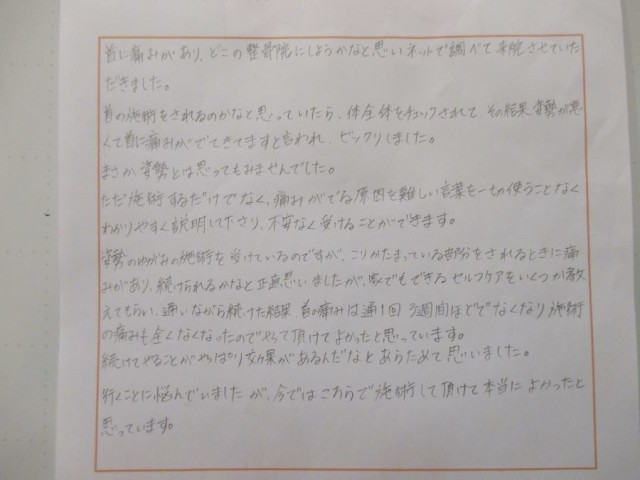 首に痛みがあり、どこの整骨院にしようかなと思いネットで調べて来院させていた
だきました。
首の施術をされるのかなと思っていたら、体全体をチェックされて その結果 姿勢が悪
くて首に痛みがでてきてますと言われ、ビックリしました。
まさか 姿勢とは思ってもみませんでした。
ただ施術するだけでなく、痛みがでる原因を難しい言葉を一も使うことなく
わかりやすく説明して下さり、不安なく受けることができます。
姿勢のゆがみの施術を受けているのですが、こりかたまっている部分をされるときに痛
みがあり、続けられるかなと正直思いましたが、家でもできるセルフケアをいくつか教
えてもらい、通いながら続けた結果、首の痛みは週1回 3週間ほどででなくなり 施術
の痛みも全くなくなったのでやって頂けてよかったと思っています。
続けてやることがやっぱり効果があるんだなと あらためて思いました。
行くことに悩んでいましたが、今ではこちらで施術して頂けて本当によかったと
思っています。